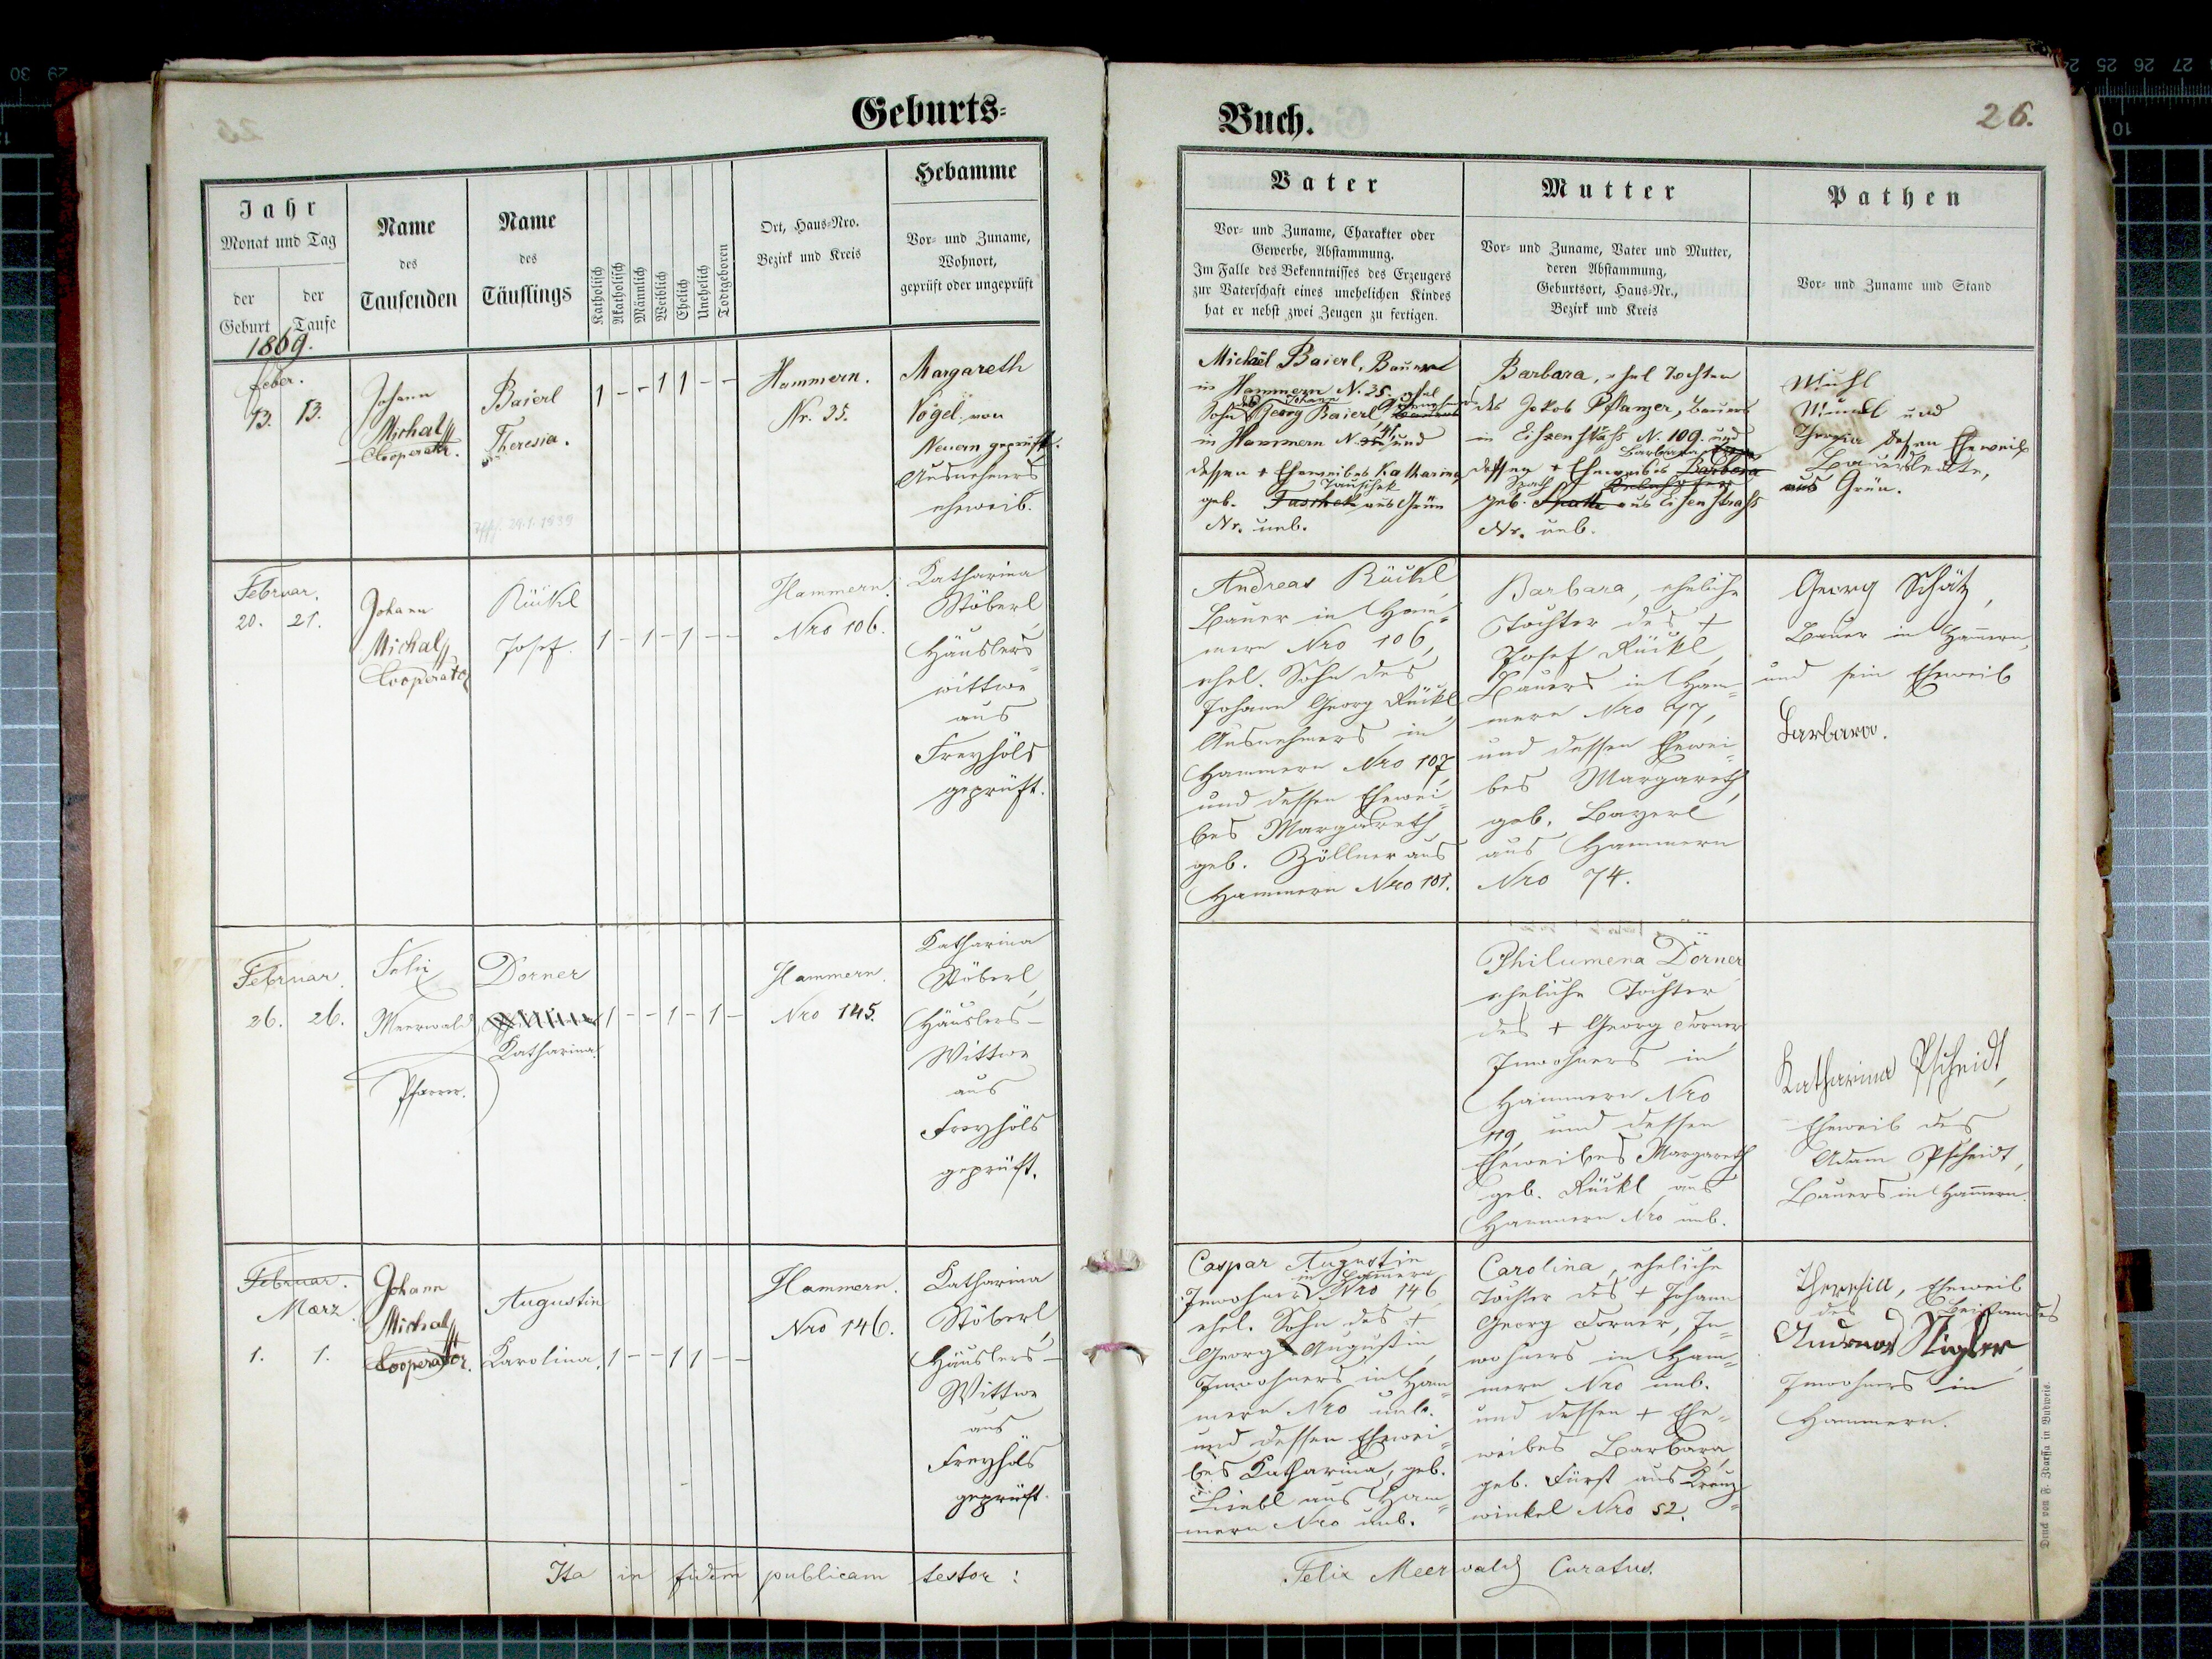 Geburts-
Jahr
Monat und Tag
der Geburt
der Taufe
Name
des
Taufenden
Name
des
Täuflings
Katholisch
Akatholisch
Männlich
Weiblich
Ehelich
Unehelich
Todtgeboren
Ort, Haus-Nro.
Bezirk und Kreis
Hebamme
Vor- und Zuname,
Wohnort,
geprüft oder ungeprüft
1869.
feber.
13. 13.
Johann
Michal
Cooperator.
Baierl
Theresia.
1 - - 1 1 - -
Hammern.
Nr. 35.
Margareth
Vogel von
Neuern geprüft.
Ausnehmers
eheweib.
24.1.1939
Februar.
20. 21.
Johann
Michal
Cooperator
Rückl
Josef.
1 - 1 - 1 - -
Hammern.
Nro 106.
Katharina
Stöberl,
Häuslers-
wittwe
aus
Freyhöls
geprüft.
Februar.
26. 26.
Felix
Meerwald
Pfarrer.
Dorner
Katharina.
1 - - 1 - 1 -
Hammern.
Nro 145.
Katharina
Stöberl,
Häuslers-
Wittwe
aus
Freyhöls
geprüft.
Februar.
März.
1. 1.
Johann
Michal
Cooperator.
Augustin
Karolina.
1 - - 1 1 - -
Hammern.
Nro 146.
Katharina
Stöberl,
Häuslers-
Wittwe
aus
Freyhöls
geprüft.
Ita in fidem publicam testor:
Buch.
26.
Vater
Vor- und Zuname, Charakter oder
Gewerbe, Abstammung.
Im Falle des Bekenntnisses des Erzeugers
zur Vaterschaft eines unehelichen Kindes
hat er nebst zwei Zeugen zu fertigen.
Mutter
Vor- und Zuname, Vater und Mutter,
deren Abstammung,
Geburtsort, Haus-Nr.,
Bezirk und Kreis
Pathen
Vor- und Zuname und Stand
Michäl Baierl, Bauer
in Hammern N. 35. ehel
Johann
Sohn des Georg Baierl
in Hammern N. 41, und
dessen + Eheweibes Katharina
Tauschek
geb. Taschek aus Grün
Nr. unb.
Barbara, ehel Tochter
des Jakob Pflanzer, Bauers
in Eisenstraß N. 109. und
Barbara
dessen + Eheweibes Barbara
Spath
geb. Spath aus Eisenstraß
Nr. unb.
Michl
Mundl und
Theresia dessen Eheweib
Bauersleute,
aus Grün.
Andreas Rückl,
Bauer in Ham-
mern Nro 106,
ehel. Sohn des
Johann Georg Rückl,
Ausnehmers in
Hammern Nro 107,
und dessen Ehewei-
bes Margareth
geb. Zöllner aus
Hammern Nro 101.
Barbara, eheliche
Tochter des +
Josef Rückl,
Bauers in Ham-
mern Nro 77,
und dessen Ehewei-
bes Margareth,
geb. Bayerl
aus Hammern
Nro 74.
Georg Schätz,
Bauer in Hammern,
und sein Eheweib
Barbara.
Philumena Dorner
eheliche Tochter
des + Georg Dorner
Inwohners in
Hammern Nro
119, und dessen
Eheweibes Margareth
geb. Rückl aus
Hammern Nro unb.
Katharina Pscheidt,
Eheweib des
Adam Pscheidt,
Bauers in Hammern.
Caspar Augustin
in Hammern
Inwohner Nro 146
ehel. Sohn des +
Georg Augustin,
Inwohners in Ham-
mern Nro unb.
und dessen Ehewei-
bes Katharina, geb.
Liebl aus Ham-
mern Nro unb.
Carolina, eheliche
Tochter des + Johann
Georg Dorner, In-
wohners in Ham-
mern Nro unb.
und dessen + Ehe-
weibes Barbara,
geb. Fürst aus Kreuz-
winkel Nro 52.
Theresia, Eheweib
des
Andreas Stigler,
Inwohners in
Hammern.
Felix Meerwald Curatus.
Druck von F. Zdarssa in Budweis.